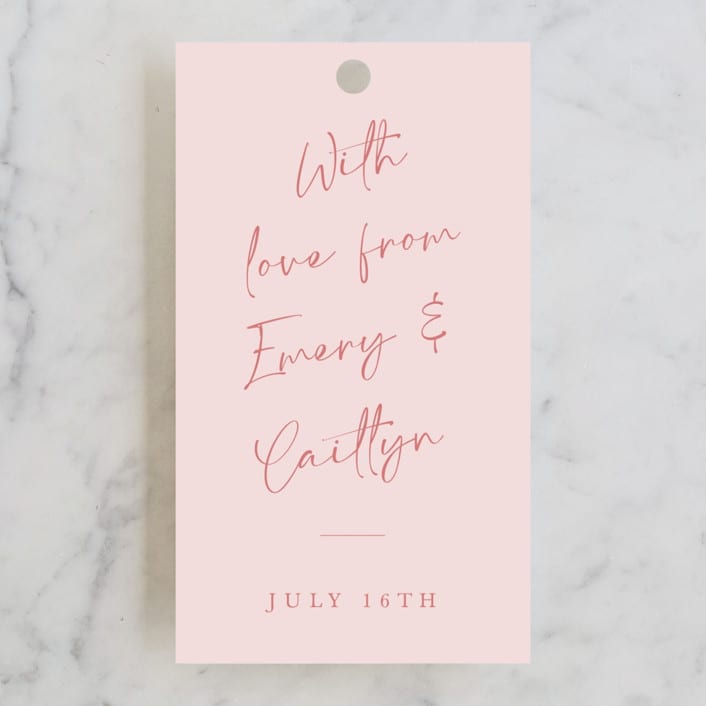 With
love from
Emery &
Caitlyn
JULY 16TH